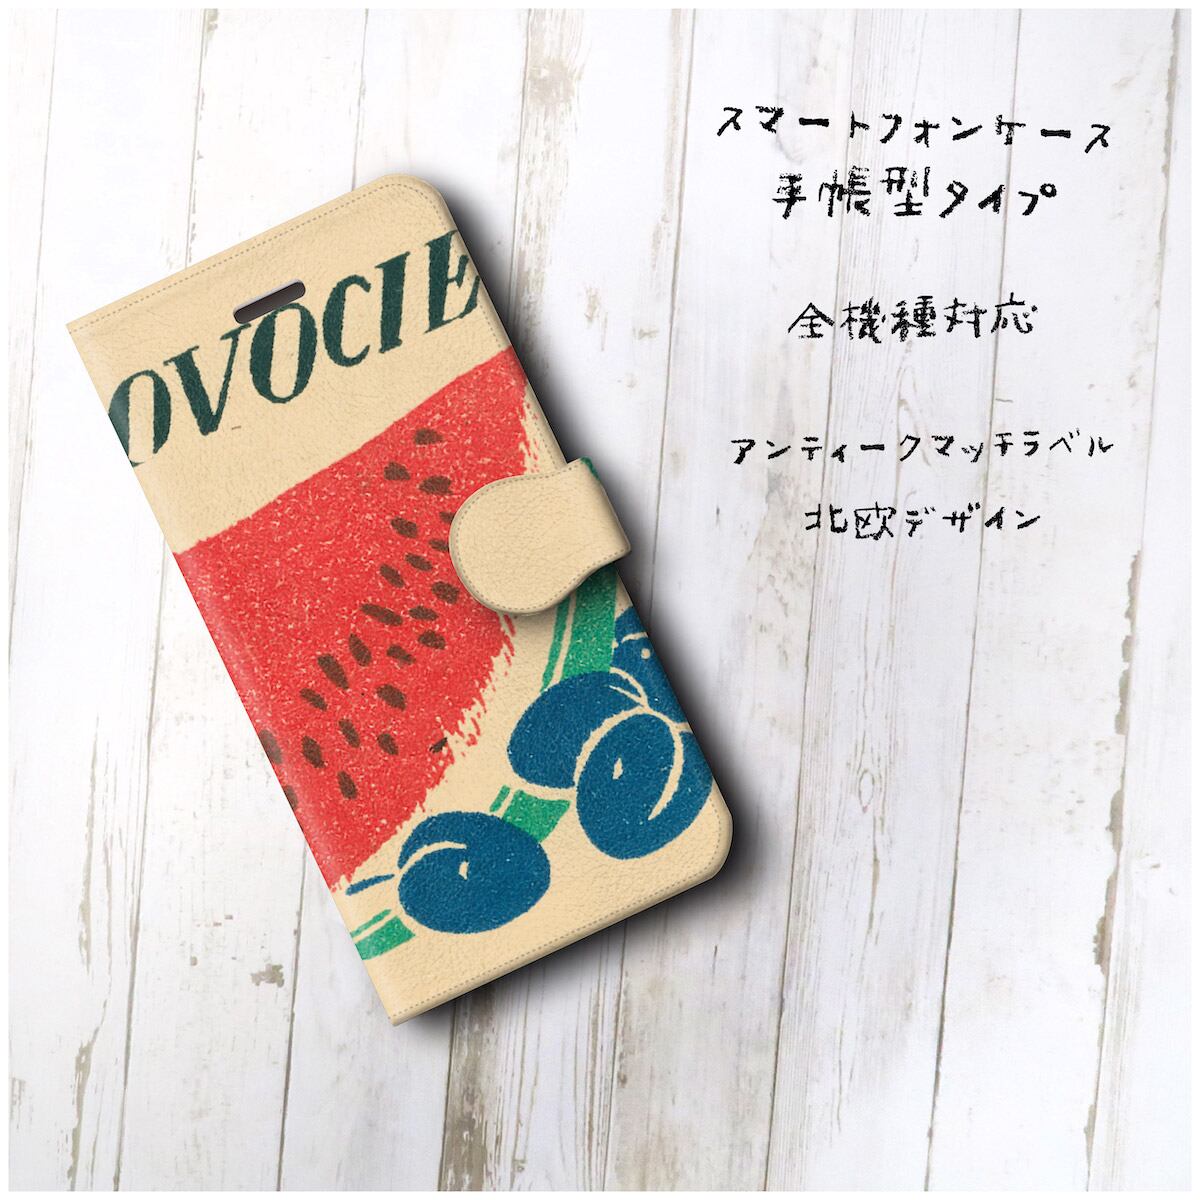 OVOCIE
スマートフォンケース
手帳型タイプ
全機種対応
アンティークマッチラベル
北欧デザイン